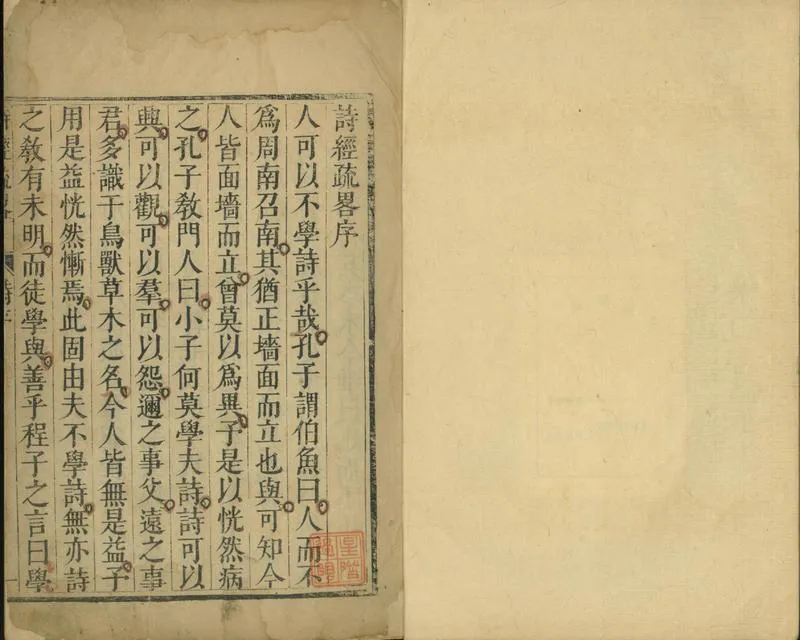 詩經疏畧序
人可以不學詩乎哉孔子謂伯魚曰人而不
爲周南召南其猶正墻面而立也與可知今
人皆面墻而立曾莫以爲異予是以恍然病
之孔子教門人曰小子何莫學夫詩詩可以
興可以觀可以羣可以怨邇之事父遠之事
君多識于鳥獸草木之名今人皆無是益予
用是益恍然慚焉此固由夫不學詩無亦詩
之教有未明而徒學與善乎程子之言曰學